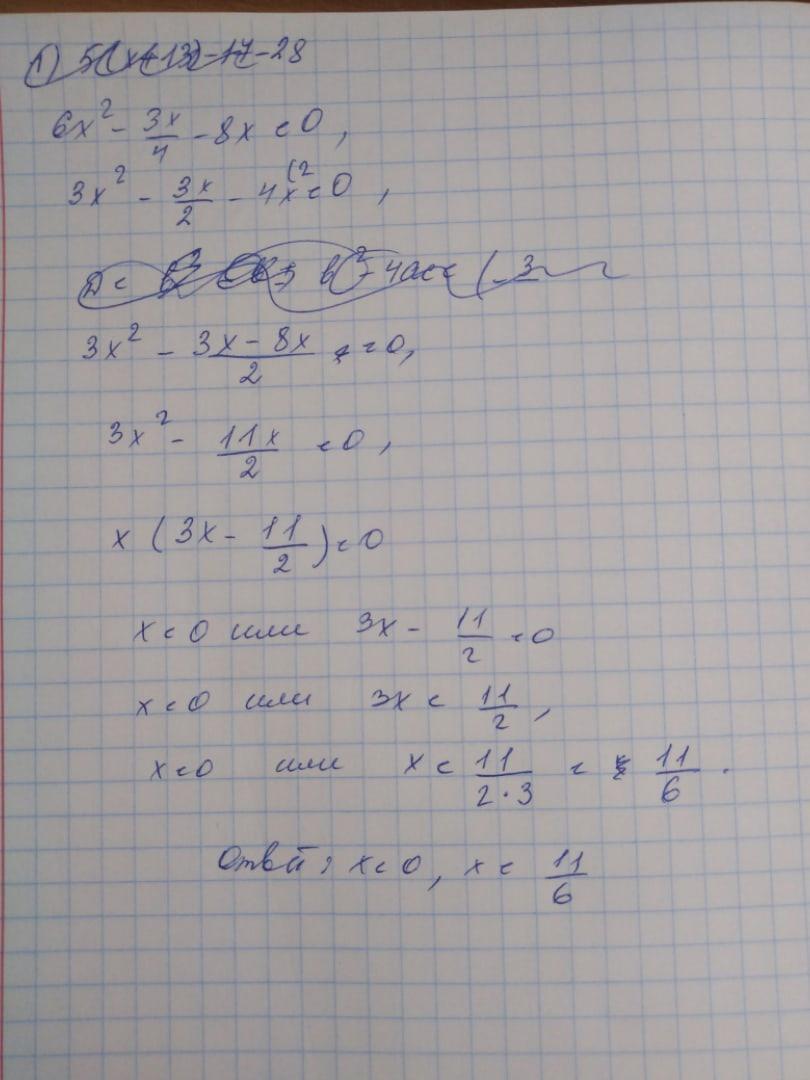 1) 5(x+13)-17-28
6x² - 3x/4 - 8x = 0,
3x² - 3x/2 - 4x = 0, (2
3x² - (3x - 8x)/2 = 0,
3x² - 11x/2 = 0,
x (3x - 11/2) = 0
x = 0 или 3x - 11/2 = 0
x = 0 или 3x = 11/2,
x = 0 или x = 11/(2·3) = 11/6.
Ответ: x = 0, x = 11/6